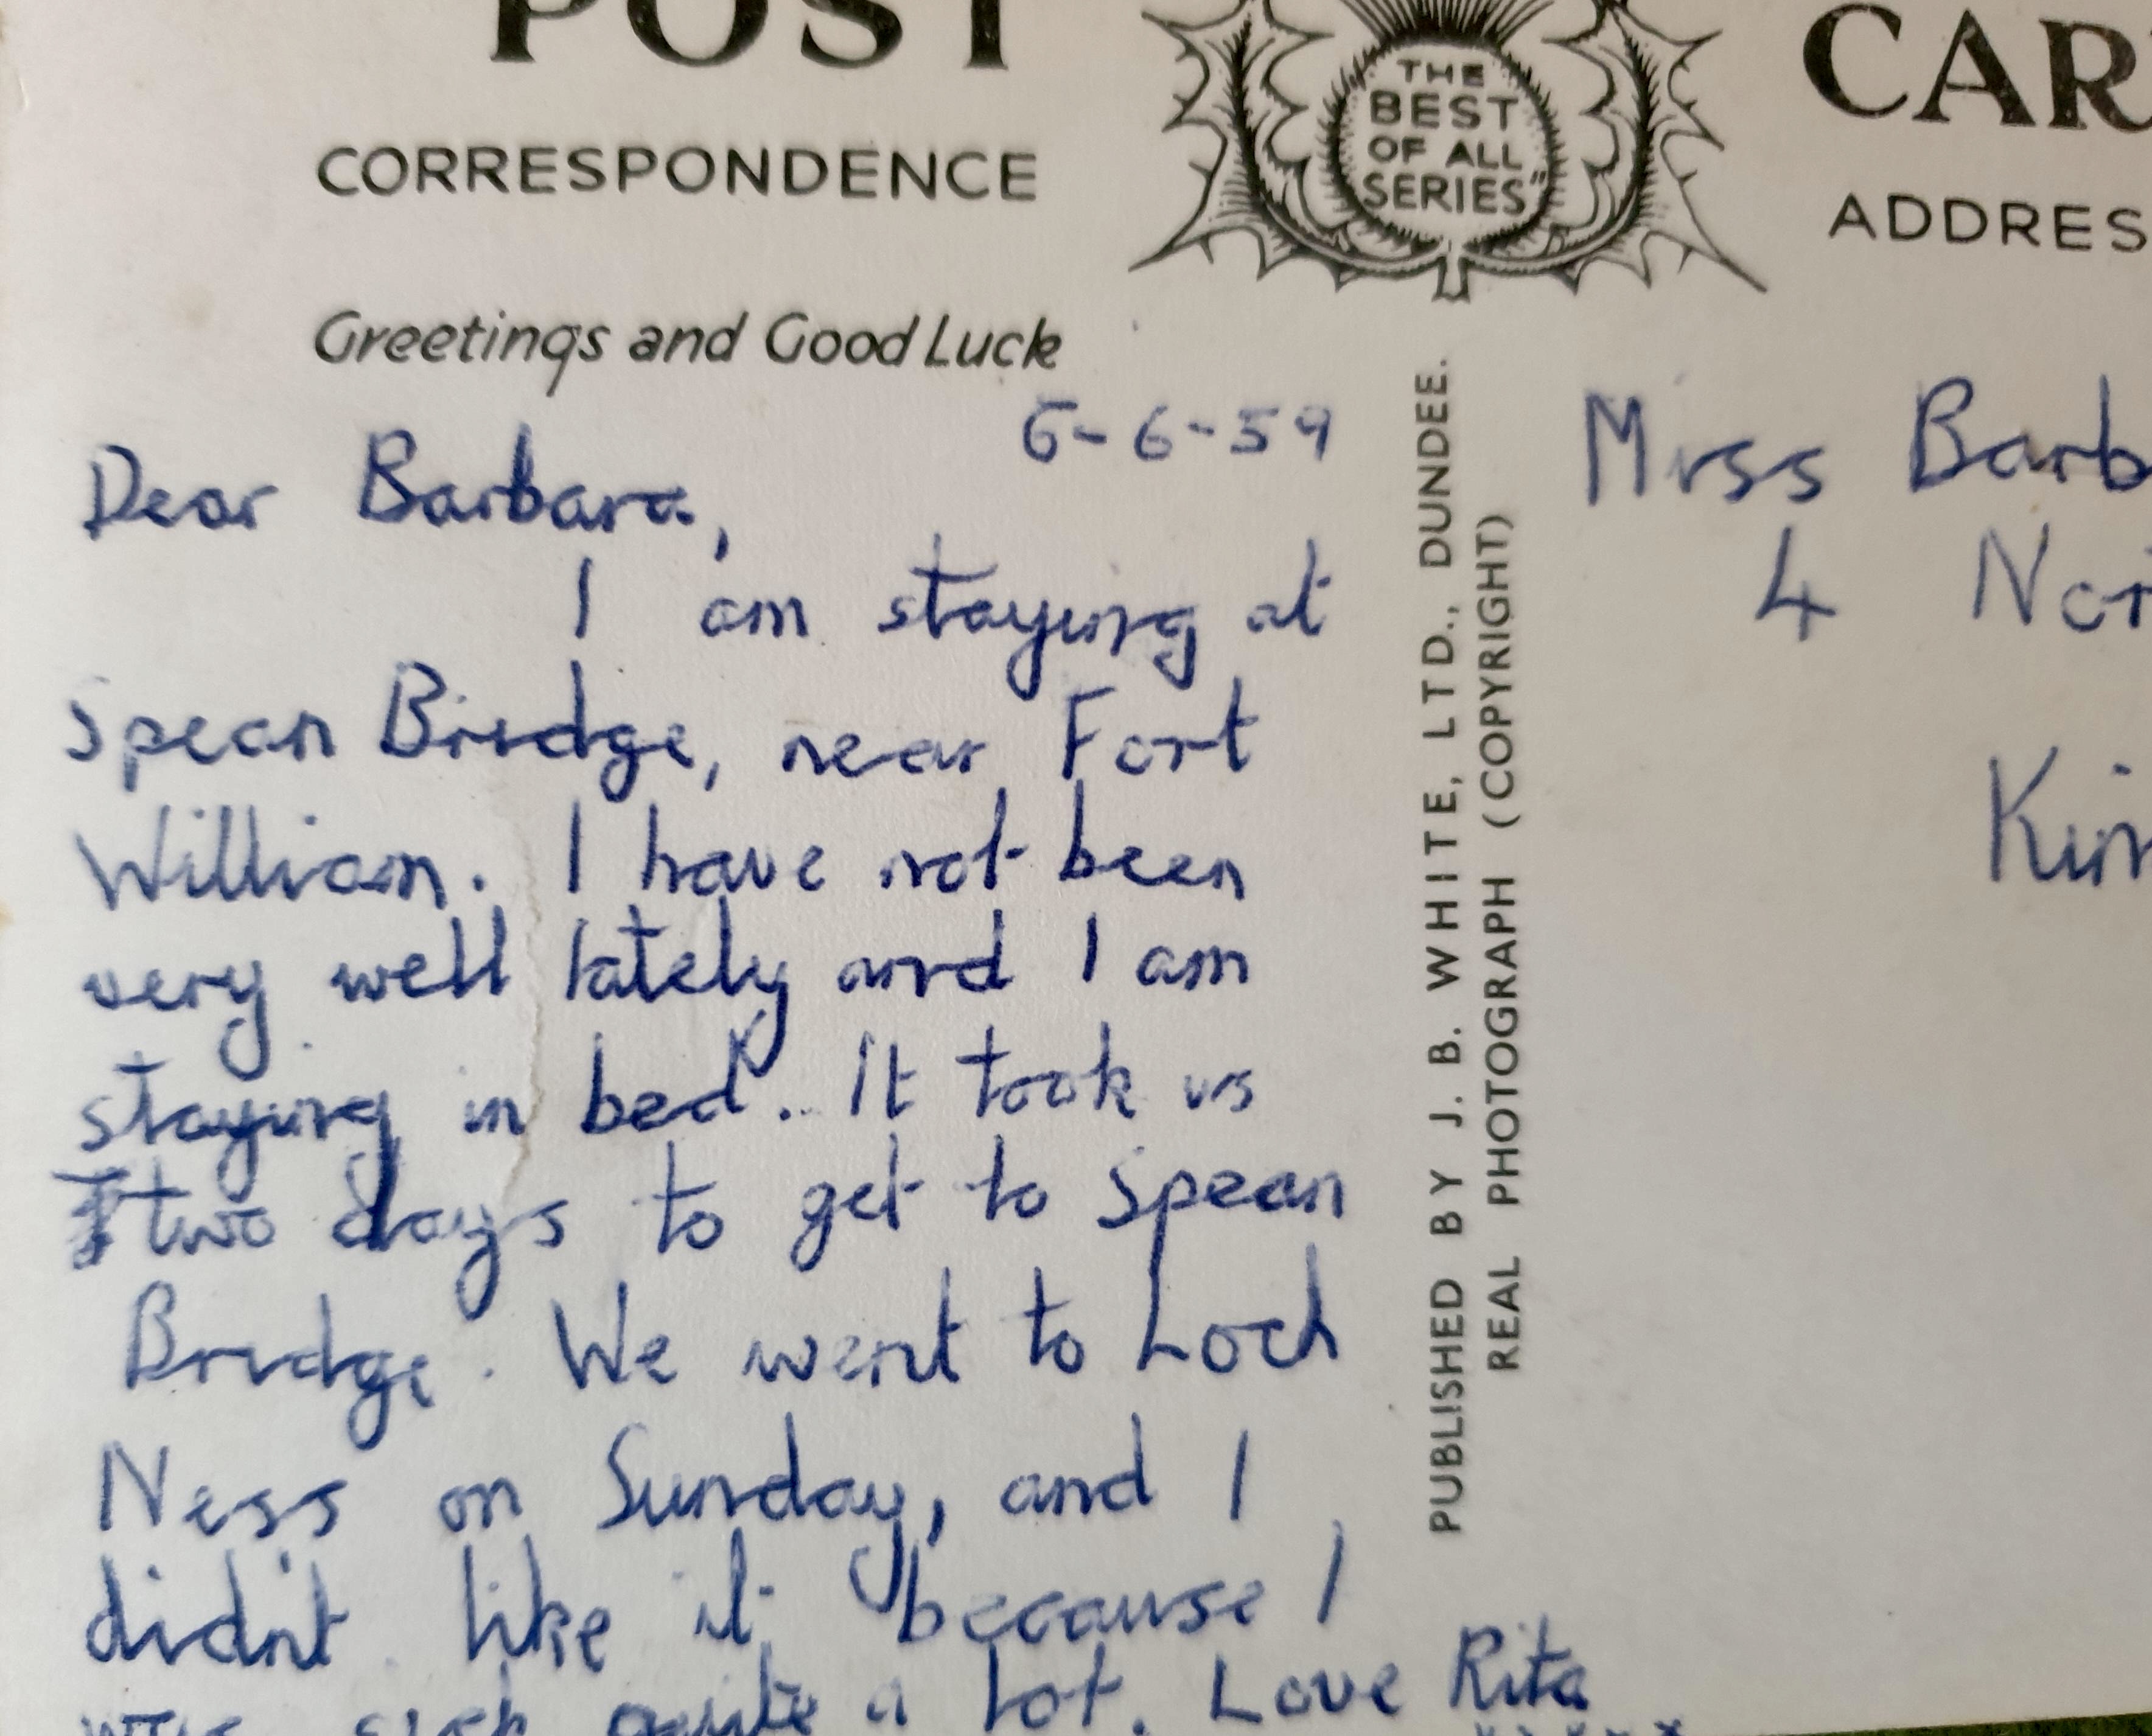 POST CAR
THE
BEST
OF ALL
SERIES"
CORRESPONDENCE
ADDRES
Greetings and Good Luck
6-6-59
Dear Barbara,
I am staying at
Spean Bridge, near Fort
William. I have not been
very well lately and I am
staying in bed. It took us
two days to get to Spean
Bridge. We went to Loch
Ness on Sunday, and I
didn't like it because I
was sick quite a lot. Love Rita
PUBLISHED BY J. B. WHITE, LTD., DUNDEE.
REAL PHOTOGRAPH (COPYRIGHT)
Miss Barb
4 Nor
Kin